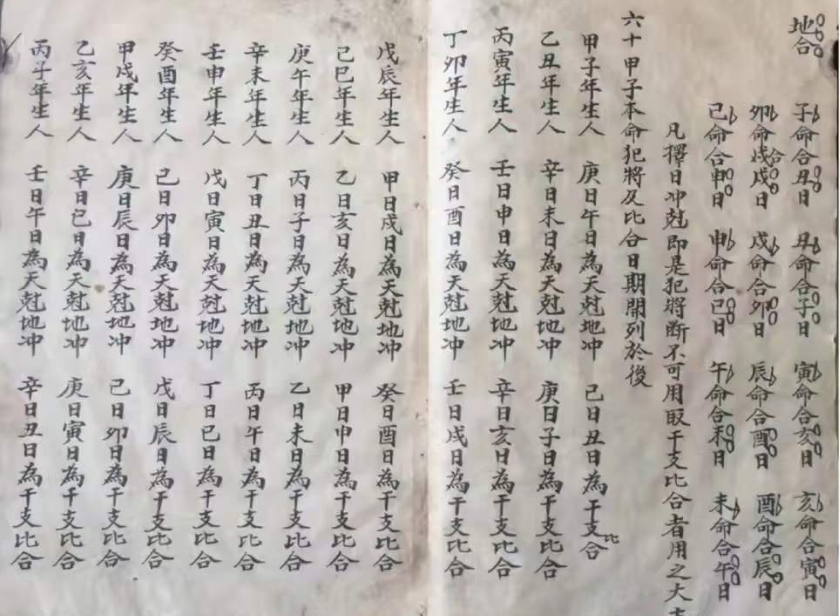 地合
子命合丑日　丑命合子日　寅命合亥日　亥命合寅日
卯命合戌日　戌命合卯日　辰命合酉日　酉命合辰日
己命合申日　申命合己日　午命合未日　未命合午日
凡擇日冲尅即是犯將斷不可用取干支比合者用之大
六十甲子本命犯將及比合日期開列於後
甲子年生人　庚日午日為天尅地冲　己日丑日為干支比合
乙丑年生人　辛日未日為天尅地冲　庚日子日為干支比合
丙寅年生人　壬日申日為天尅地冲　辛日亥日為干支比合
丁卯年生人　癸日酉日為天尅地冲　壬日戌日為干支比合
戊辰年生人　甲日戌日為天尅地冲　癸日酉日為干支比合
己巳年生人　乙日亥日為天尅地冲　甲日申日為干支比合
庚午年生人　丙日子日為天尅地冲　乙日未日為干支比合
辛未年生人　丁日丑日為天尅地冲　丙日午日為干支比合
壬申年生人　戊日寅日為天尅地冲　丁日巳日為干支比合
癸酉年生人　己日卯日為天尅地冲　戊日辰日為干支比合
甲戌年生人　庚日辰日為天尅地冲　己日卯日為干支比合
乙亥年生人　辛日巳日為天尅地冲　庚日寅日為干支比合
丙子年生人　壬日午日為天尅地冲　辛日丑日為干支比合